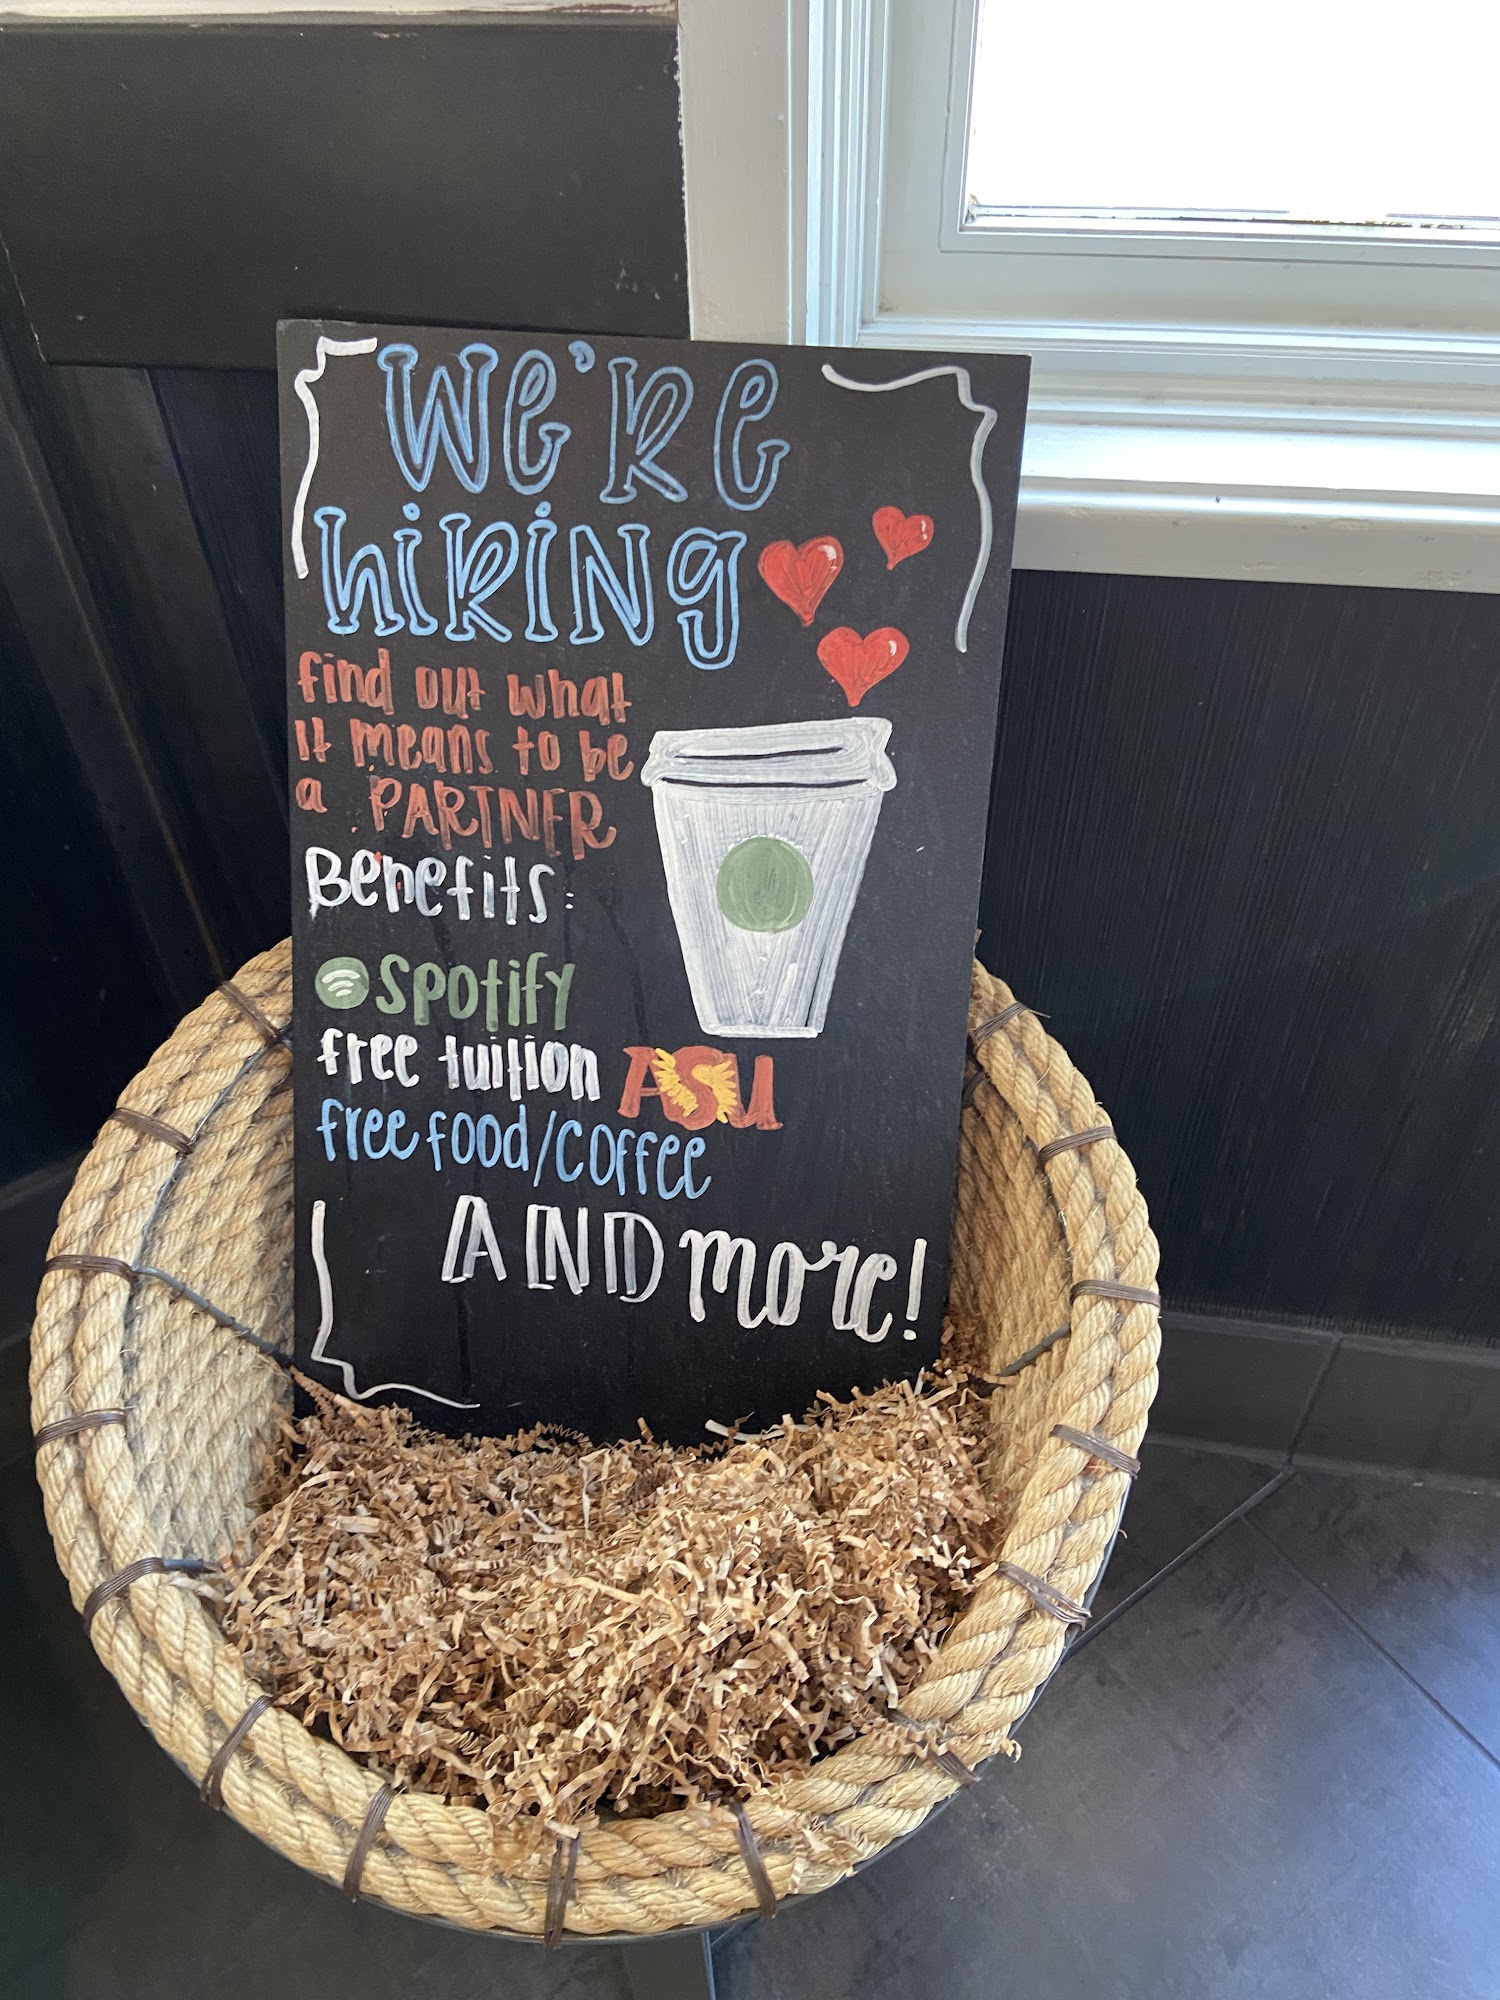 We're
hiring
find out what
it means to be
a PARTNER
Benefits:
spotify
free tuition ASU
free food/coffee
AND more!